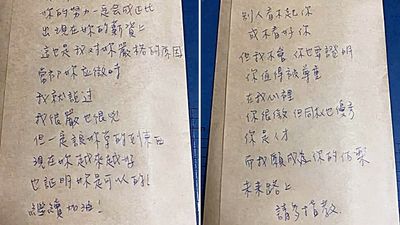 你的努力一定會成正比
出現在妳的薪資上
這也是我對妳嚴格的原因
當初妳應徵時
我就說過
我很嚴也很兇
但一定讓妳學的到東西
現在妳越來越好
也證明妳是可以的!
繼續加油!
別人看不起你
或不看好你
但我不管 你也要證明
你值得被尊重
在我心裡
你很傲 但同校也優秀
你是人才
而我願成為你的伯樂
未來路上
請多指教.